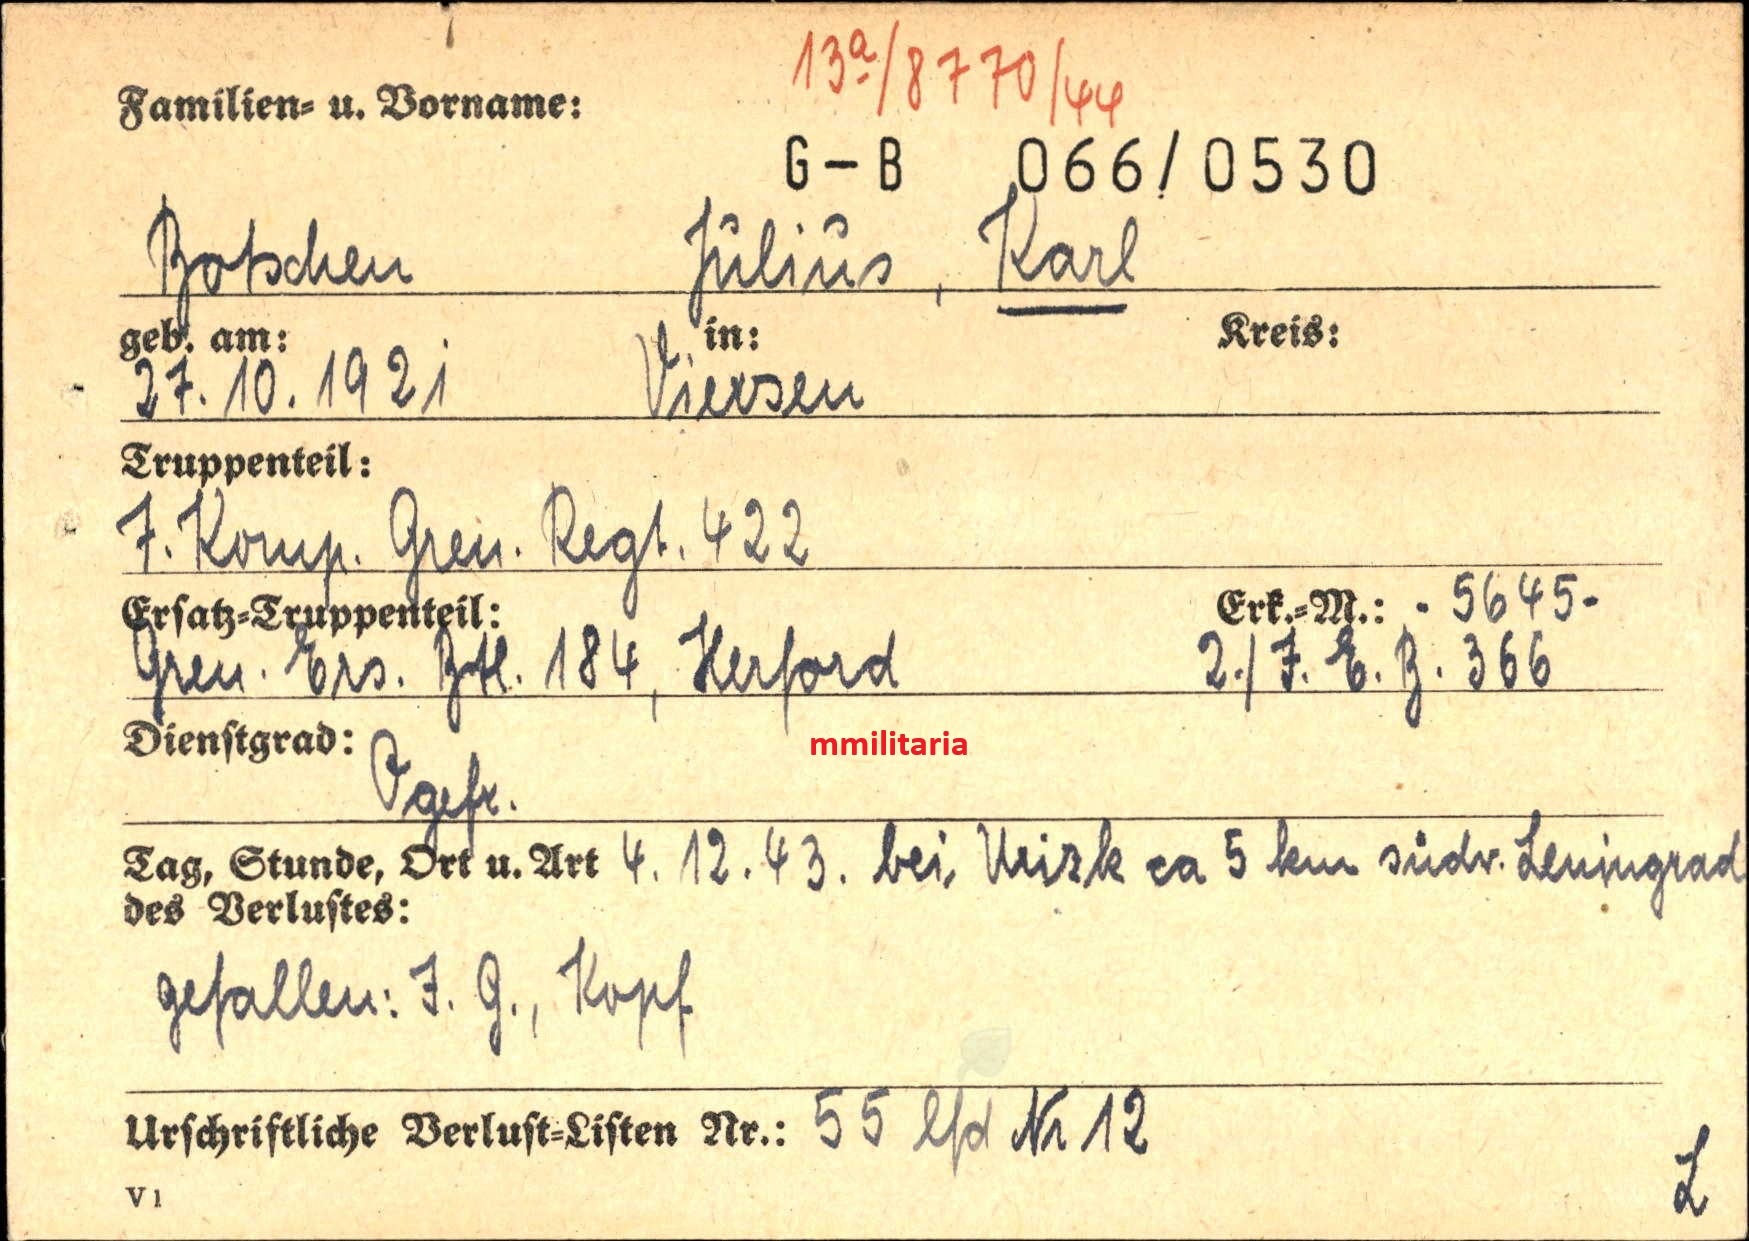 13a/8770/44
Familien- u. Vorname:
G-B 066/0530
Botschen Julius, Karl
geb. am: in: Kreis:
27.10.1921 Viersen
Truppenteil:
7. Komp. Gren. Regt. 422
Ersatz-Truppenteil: Erk.-M.: -5645-
Gren. Ers. Btl. 184, Herford 2./J.E.B. 366
Dienstgrad:
mmilitaria
Ogefr.
Tag, Stunde, Ort u. Art 4.12.43. bei Urizk ca 5 km südw. Leningrad
des Verlustes:
gefallen: J.G., Kopf
Urschriftliche Verlust-Listen Nr.: 55 lfd Nr 12
V 1
L